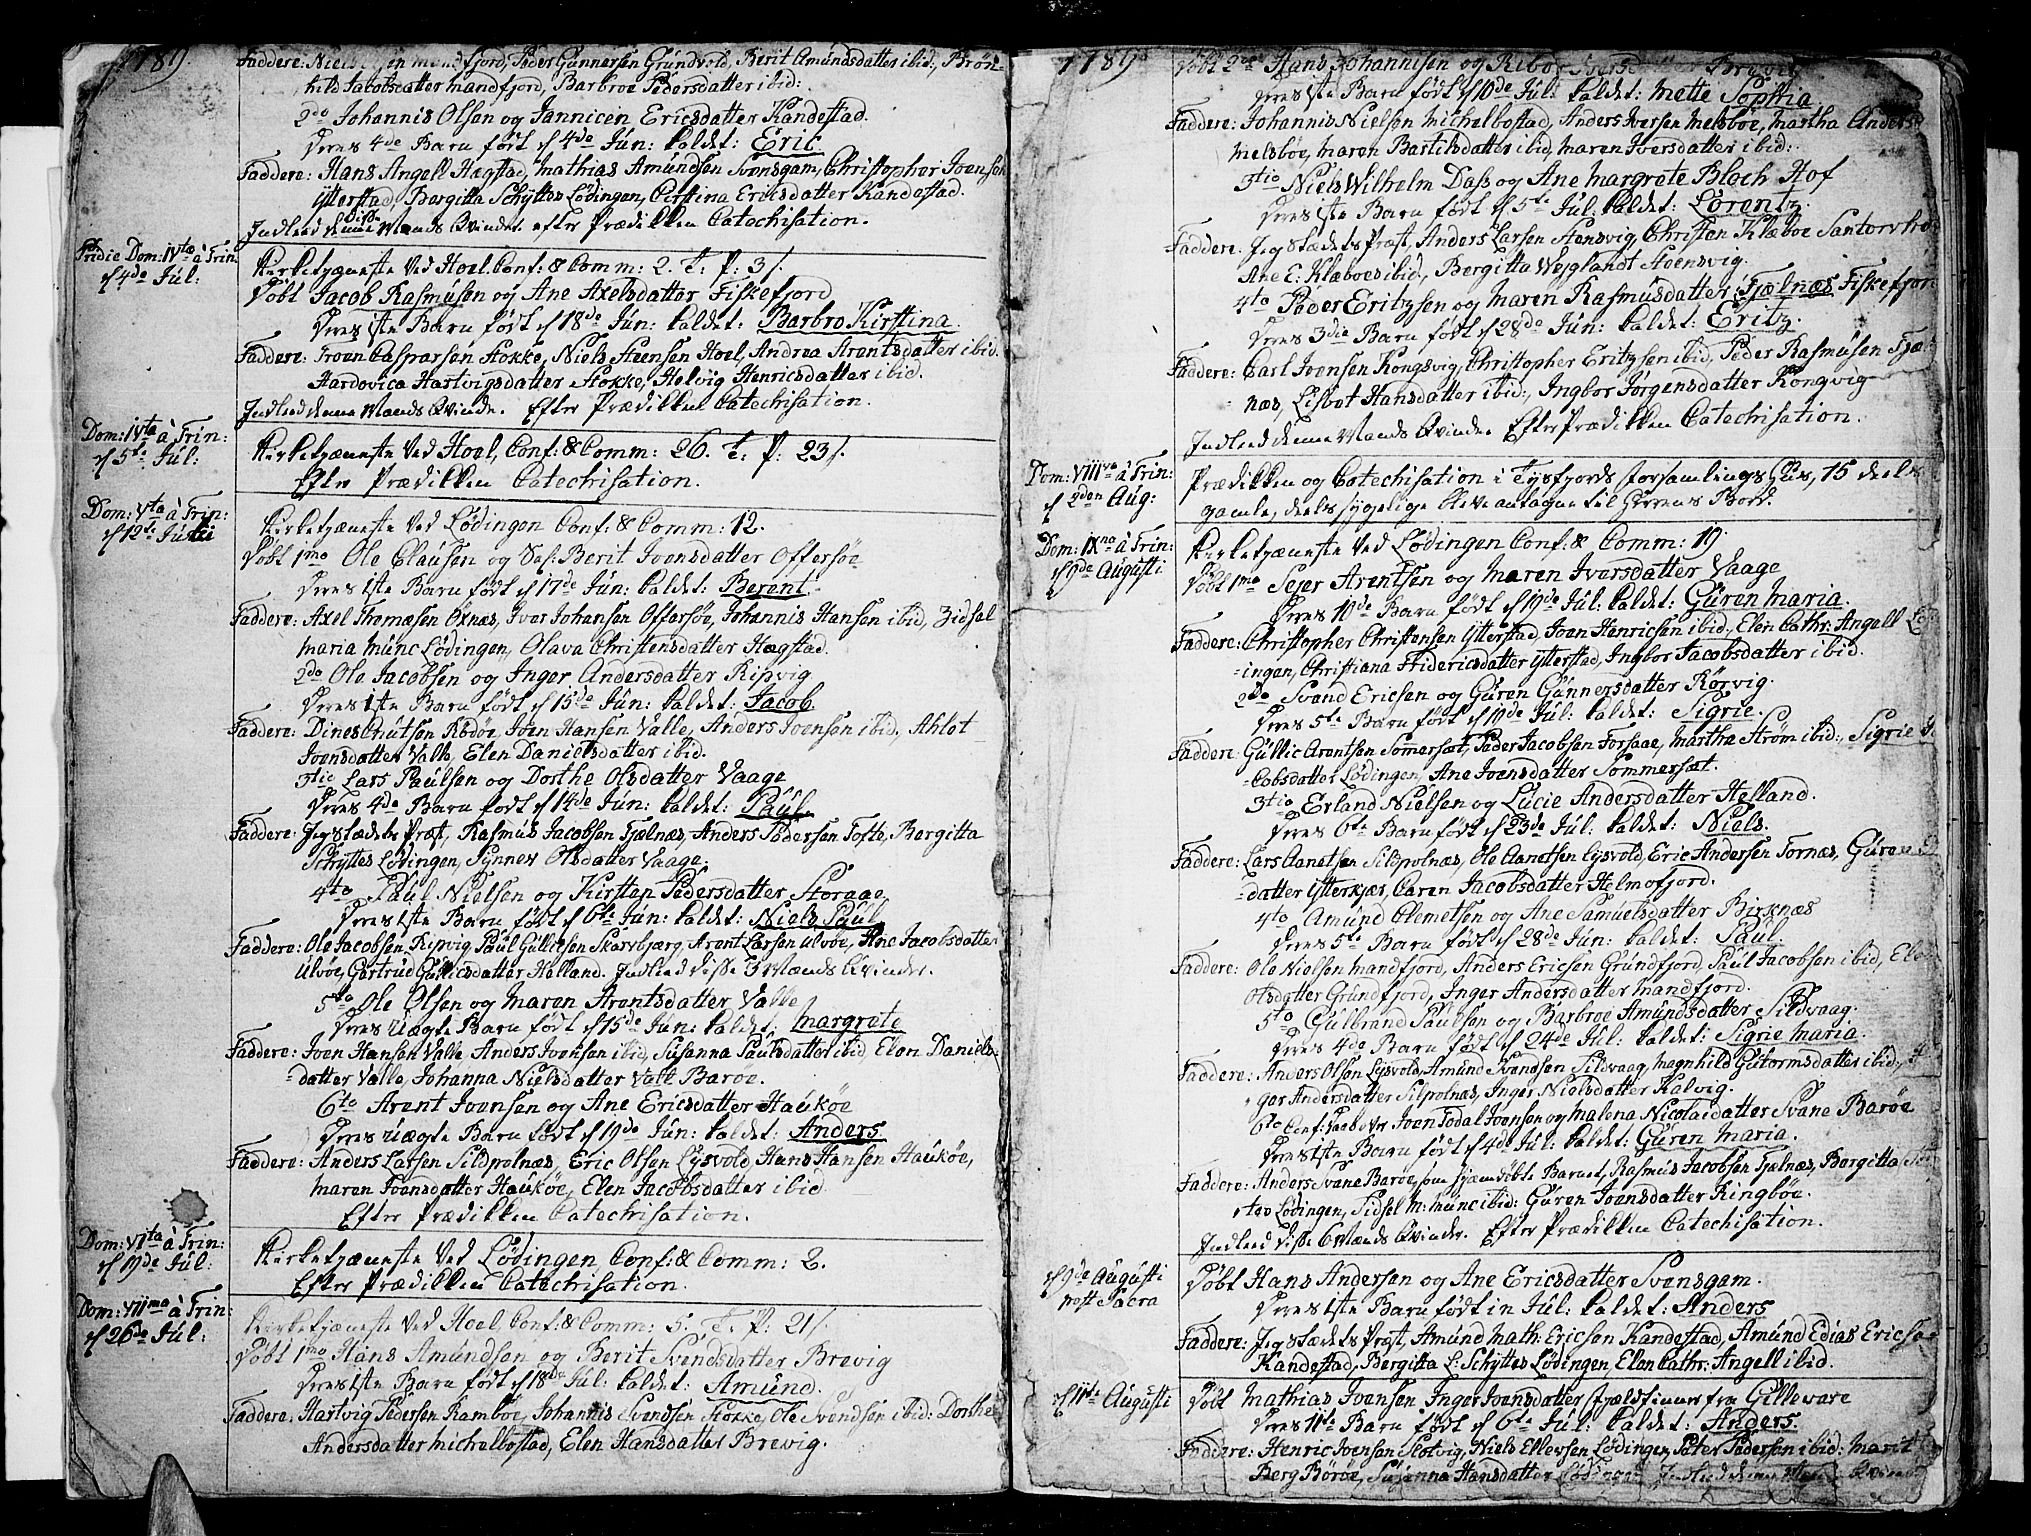 1789.
Faddere: Niels in mandfjord, Peder Gunnersen Grundvold, Berit Amundsdatter ibid:, Brøn-
hild Jacobsdatter mandfjord, Barbroe Pedersdatter ibid:
2do Johannis Olsen og Jannicen Ericsdatter Kandestad.
Deres 4de Barn født d 4de Jun: kaldet: Eric.
Faddere: Hans Angell Hægstad, Mathias Amundsen Svensgam, Christopher Jvensen
Ytterstad, Bergitta Schyttes Lødingen, Cirstina Ericksdatter Kandestad.
Indleed disse Mænds Qvinder efter Prædikken Catechisation.
Pridie Dom: IVtæ à Trin:
d 4de Jul:
Kirketjæneste ved Hoel. Conf: & Comm: 2. T. P: 3/.
Døbt Jacob Rasmusen og Ane Axelsdatter Fiskefjord
Deres 1ste Barn født d 18de Jun: kaldet: Barbro Kirstina.
Faddere: Troen Casparsen Stokke, Niels Steensen Hoel, Andrea Arentsdatter ibid.
Hardovica Hartvigsdatter Stokke, Helvig Henricsdatter ibid.
Indleed denne Mands Qvinde. Efter Prædikken Catechisation.
Dom: IVta à Trin:
d 5te Jul:
Kirketjæneste ved Hoel, Conf: & Comm: 26. T. P: 23/.
Efter Prædikken Catechisation.
Dom: Vta à Trin:
d 12te Julii
Kirketjæneste ved Lødingen Conf: & Comm: 12.
Døbt 1mo Ole Clausen og Sal: Berit Jvensdatter Offersøe
Deres 1ste Barn født d 17de Jun: kaldet: Berent.
Faddere: Axel Thomæsen Oxnæs, Iver Johansen Offersøe, Johannis Hansen ibid, Zidsel
Maria Münc Lødingen, Olava Christensdatter Hægstad.
2do Ole Jacobsen og Inger Andersdatter Ripvig
Deres 1ste Barn født d 15de Jun: kaldet: Jacob.
Faddere: Dines Cnutsen Rødøe, Jven Hansen Valle, Anders Jvensen ibid, Ahlot
Jvensdatter Valle, Elen Danielsdatter ibid.
3tio Lars Paulsen og Dorthe Olsdatter Vaage
Deres 4de Barn født d 14de Jun: kaldet: Paul.
Faddere: Jeg stædets Præst, Rasmus Jacobsen Fjælnæs, Anders Pedersen Tofte, Bergitta
Schyttes Lødingen, Synnev Olsdatter Vaage.
4to Paul Nielsen og Kirsten Pedersdatter Storaae
Deres 1ste Barn født d 6te Jun: kaldet: Niels Paul.
Faddere: Ole Jacobsen Ripvig Paul Gullicsen Skarvbjærg, Arent Larsen Ulvøe, Ane Jacobsdatter
Ulvøe, Gertrud Gullicsdatter Helland. Indleed disse 3 Mænds Qvinder.
5to Ole Olsen og Maren Arentsdatter Valle
Deres Uægte Barn født d 15de Jun: kaldet: Margrete
Faddere: Jven Hansen Valle Anders Jvensen ibid, Susanna Paulsdatter ibid, Elen Daniels-
datter Valle, Johanna Nielsdatter Valt Barøe.
6to Arent Jvensen og Ane Ericsdatter Haukøe
Deres Uægte Barn født d 19de Jun: kaldet: Anders
Faddere: Anders Larsen Sildpolnæs, Eric Olsen Lysvold, Hans Hansen Haukøe,
Maren Jvensdatter Haukøe, Elen Jacobsdatter ibid
Efter Prædikken Catechisation.
Dom: VIta à Trin:
d 19de Jul:
Kirketjæneste ved Lødingen Conf: & Comm: 2.
Efter Prædikken Catechisation.
Dom: VIIma à Trin:
d 26de Jul:
Kirketjæneste ved Hoel. Conf: & Comm: 5. T. P: 21/.
Døbt 1mo Hans Amundsen og Berit Svendsdatter Brevig
Deres 1ste Barn født d 18de Jul: kaldet: Amund.
Faddere: Hartvig Pedersen Ramboe, Johannis Svendsen Stokke, Ole Svendsen ibid: Dorthe
Andersdatter Michelbostad, Elen Hansdatter Brevig.
1789
Døbt 2do Hans Johannisen og Ribor Brevig
Deres 1ste Barn født d 10de Jul: kaldet: Mette Sophia
Faddere: Johannis Nielsen Michelbostad, Anders Iversen Melsboe, Martha Anders
Melsboe, Maren Bartilsdatter ibid, Maren Iversdatter ibid:
3tio Niels Wilhelm Dass og Ane Margrete Bloch Hof
Deres 1ste Barn født d 5te Jul: kaldet: Lorentz.
Faddere: Jeg stædets Præst, Anders Larsen Steensvig, Christen Klæboe Santorvho
Ane E: Klæboes ibid, Bergitta Weyglandt Steensvig.
4to Peder Eritzsen og Maren Rasmusdatter Fjælnæs Fiskefjor
Deres 3die Barn født d 28de Jun: kaldet: Eritz.
Faddere: Carl Jvensen Kongsvig, Christopher Eritzsen ibid, Peder Rasmusen Fjæl-
næs, Lisbet Hansdatter ibid:, Ingbor Jørgensdatter Kongvig
Indleed denne Mands Qvinde Efter Prædikken Catechisation.
Dom: VIIIva à Trin:
d 2den Aug:
Prædikken og Catechisation i Tysfjords forsamlings Hus, 15 deels
gamle, deels sygelige bleve antagne til HErrens Bord.
Dom: IXna à Trin:
d 9de Augusti
Kirketjæneste ved Lødingen Conf: & Comm: 19.
Døbt 1mo Sejer Arentsen og Maren Iversdatter Vaage
Deres 10de Barn født d 19de Jul: kaldet: Guren Maria.
Faddere: Christopher Christensen Ytterstad, Jven Henricsen ibid:, Elen Cathr: Angell Lød-
ingen, Christiana Fridericsdatter Ytterstad, Ingbor Jacobsdatter ibid.
2do Svend Ericsen og Guren Gunnersdatter Rørvig.
Deres 5te Barn født d 19de Jul: kaldet: Sigrie.
Faddere: Gullic Arentsen Sommersæt, Peder Jacobsen Forsaae, Martha Strøm ibid:, Sigrie Ja-
cobsdatter Lødingen, Ane Jvensdatter Sommersæt.
3tio Erland Nielsen og Lucie Andersdatter Helland.
Deres 6te Barn født d 23de Jul: kaldet: Niels.
Faddere: Lars Aanetsen Sildpolnæs, Ole Aanetsen Lysvold, Eric Andersen Tornæs, Guren
datter Ytterkjær, Caren Jacobsdatter Helmofjord.
4to Amund Clemetsen og Ane Samuelsdatter Birknæs
Deres 5te Barn født d 28de Jun: kaldet: Paul.
Faddere: Ole Nielsen Mandfjord, Anders Ericsen Grundfjord, Paul Jacobsen ibid, Elen
Olsdatter Grundfjord, Inger Andersdatter Mandfjord.
5to Gulbrand Paulsen og Barbroe Amundsdatter Sildvaag.
Deres 4de Barn født d 24de Jul: kaldet: Sigrie Maria.
Faddere: Anders Olsen Lysvold, Amund Svendsen Sildvaag, Magnhild Gutormsdatter ibid:,
ger Andersdatter Silpolnæs, Inger Nielsdatter Kalvig.
6to Conf: Jven Todal Jvensen og Malena Nicolaidatter Svane Barøe
Deres 1ste Barn født d 4de Jul: kaldet: Guren Maria.
Faddere: Anders Svane Barøe, som hjæmdøbte Barnet, Rasmus Jacobsen Fjælnæs, Bergitta
Lødingen, Sidsel M: Münc ibid: Guren Jvensdatter Ringbøe.
Indleed disse 6 Mænds Qvinder. Efter Prædikken Catechisation.
d 9de Augusti
post Sacra
Døbt Hans Andersen og Ane Ericsdatter Svensgam.
Deres 1ste Barn født in Jul: kaldet: Anders
Faddere: Jeg stædets Præst, Amund Math: Ericsen Kandestad, Amund Edias Ericsen
Kandestad, Bergitta L: Schyttes Lødingen, Elen Cathr: Angell ibid.
d 11te Augusti
Døbt Mathias Jvensen Inger Jvensdatter fjældfinner fra Gilleware
Deres 11te Barn født d 6te Jul: kaldet: Anders.
Faddere: Henric Jvensen Slotvig, Niels Ellevsen Lødingen, Peter Pedersen ibid: Marit
Berg Børøe, Susanna Hansdatter Lødingen Indleed denne Mands Qvinde